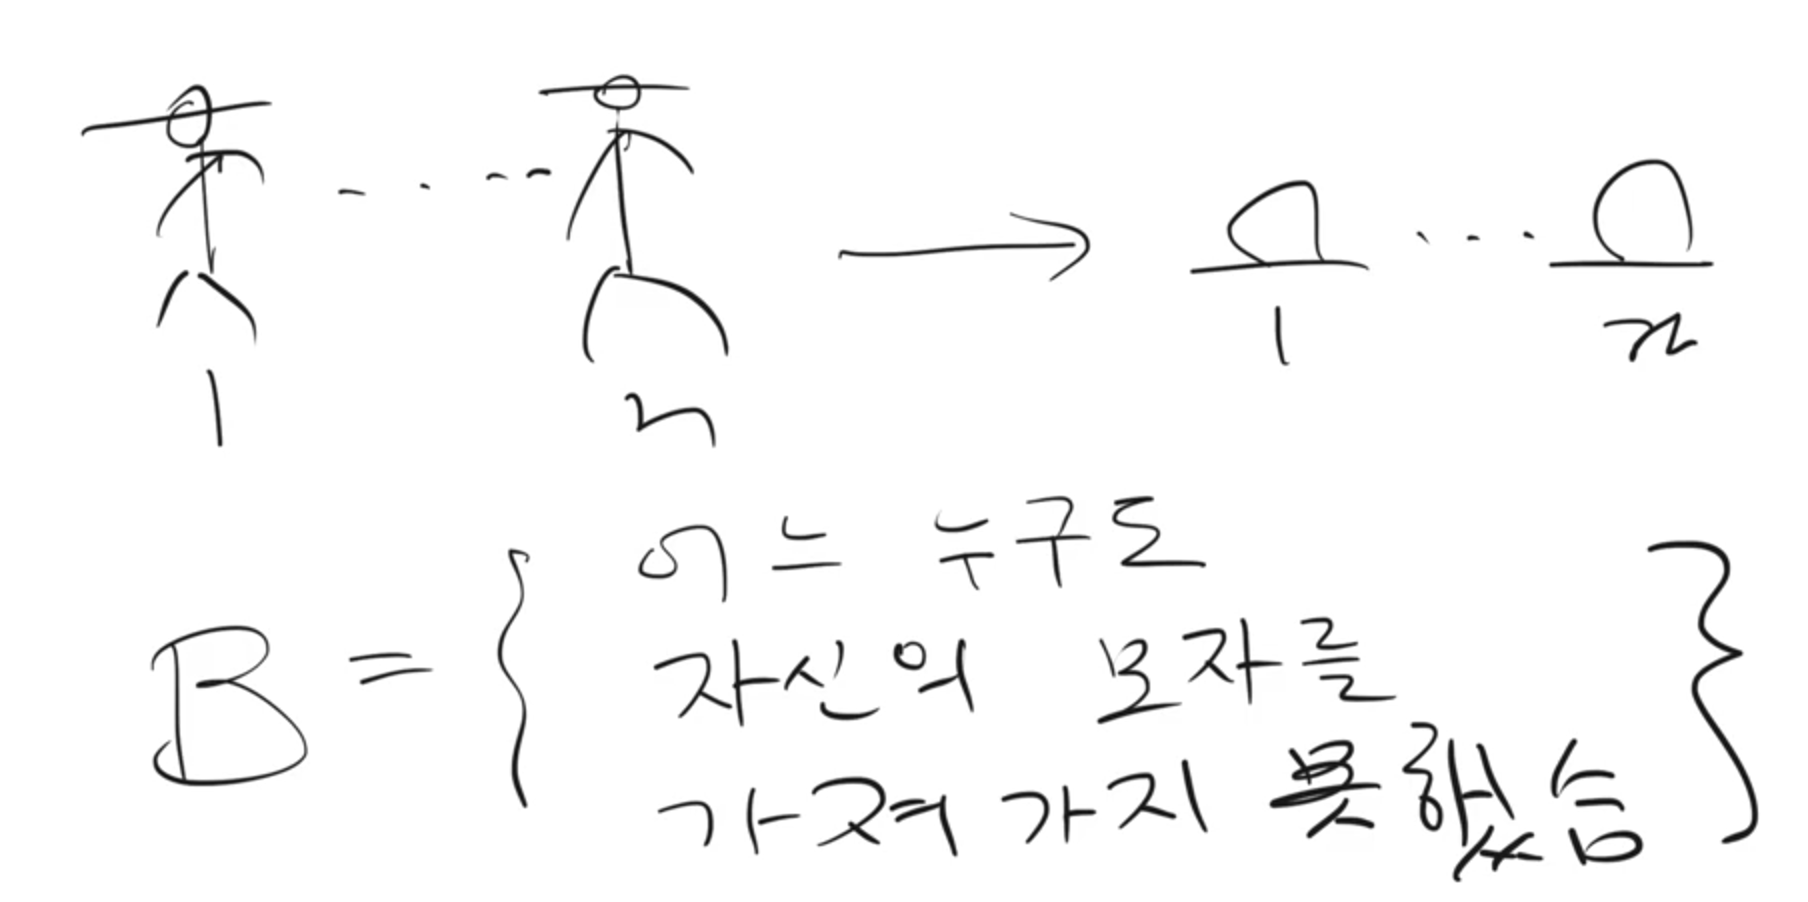 1 n 1 n
B = { 어느 누구도
자신의 모자를
가져가지 못했음 }